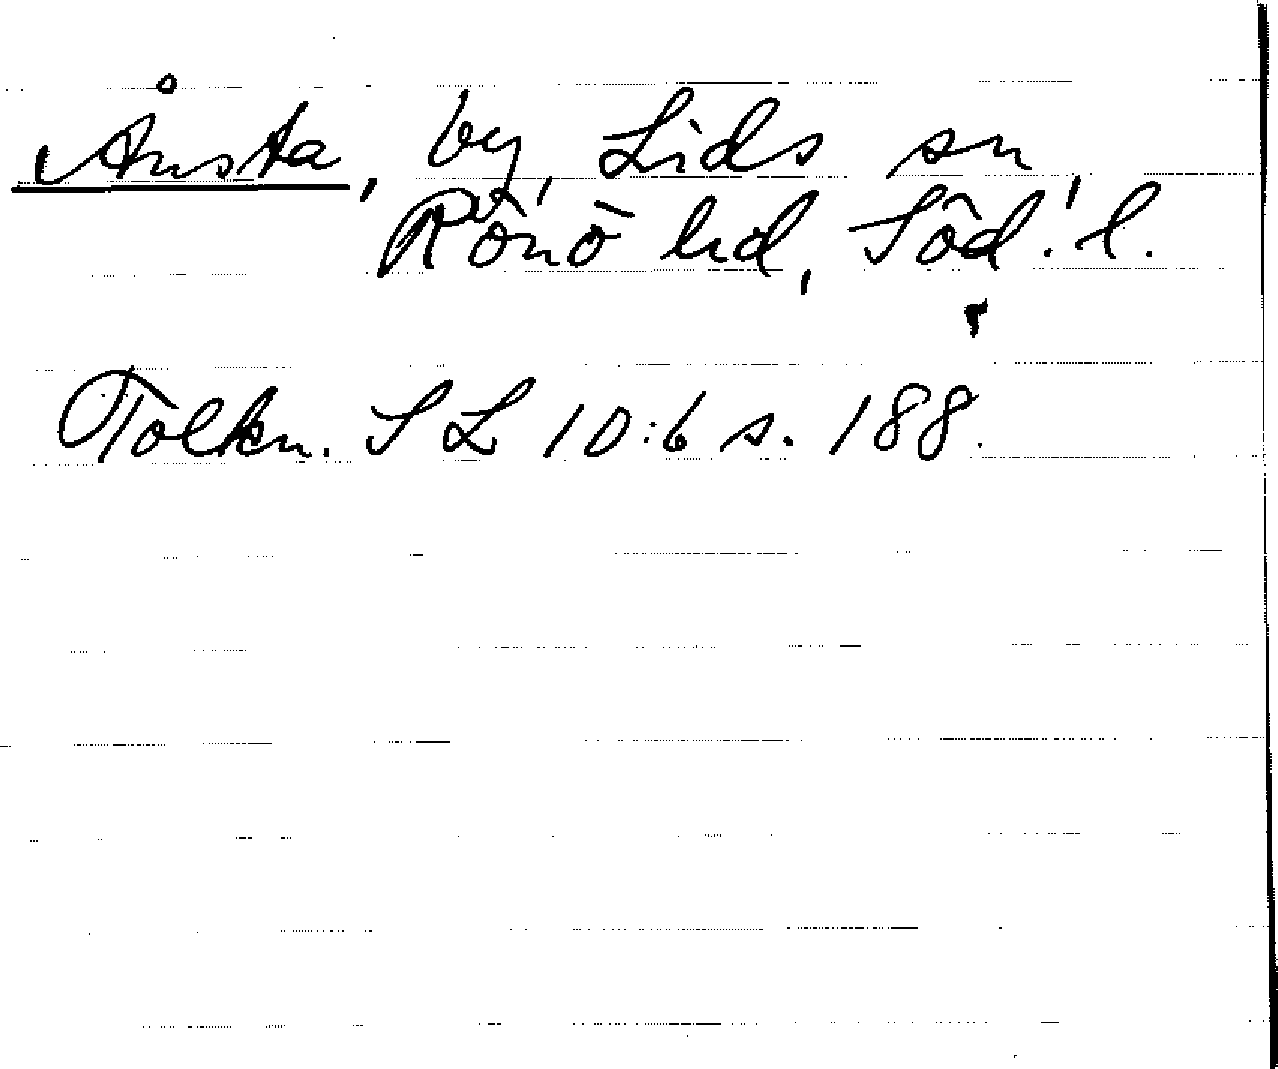 Ånsta, by, Lids sn,
Rönö hd, Söd. l.
Tolkn. SL 10:6 s. 188.